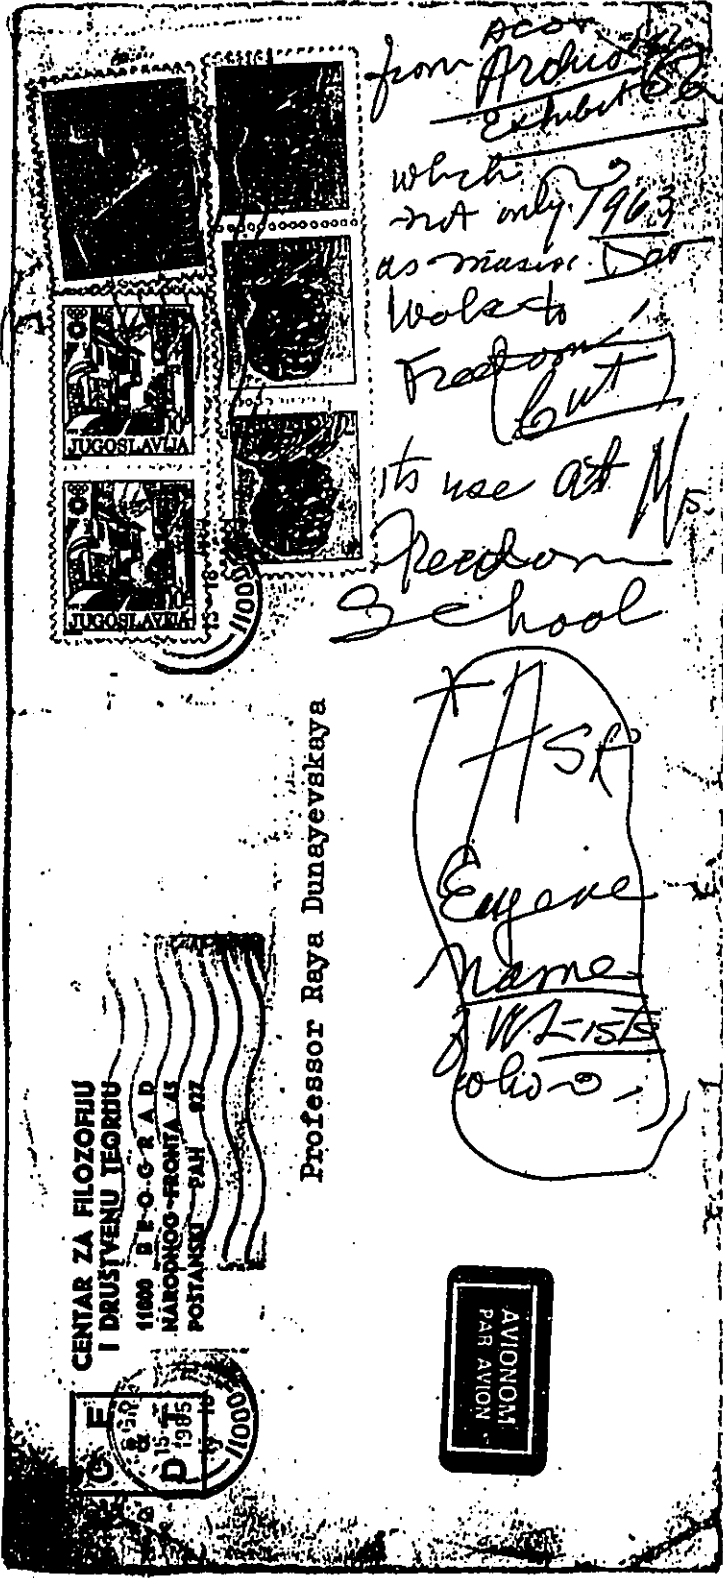 from Archives
Exhibit
which
not only 1963
as massive
Walk to
Freedom,
but
its use at
Freedom
School
* Ask
Eugene
name
of WL-ists
who
JUGOSLAVIJA
JUGOSLAVIJA
11000
Professor Raya Dunayevskaya
CENTAR ZA FILOZOFIJU
I DRUŠTVENU TEORIJU
11000 BEOGRAD
NARODNOG FRONTA 45
POŠTANSKI PAH 927
CFDT
15
1985
11000
AVIONOM
PAR AVION